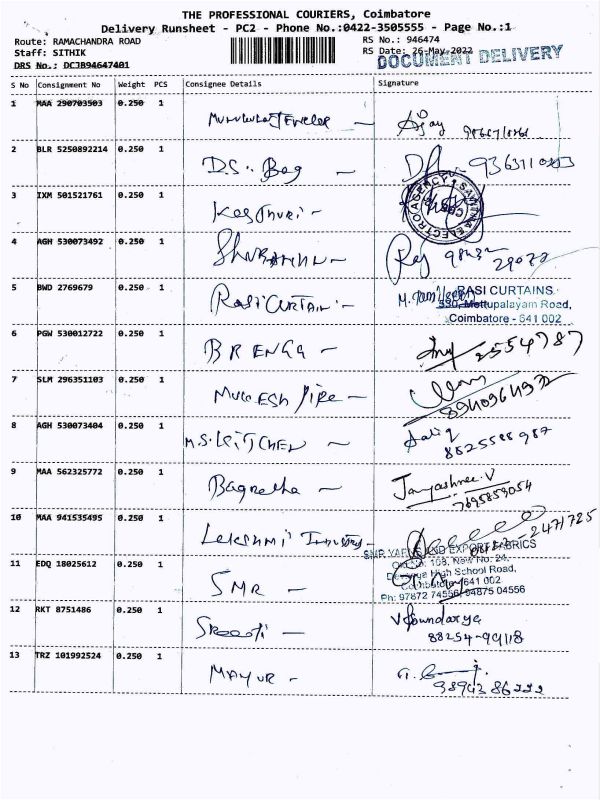 THE PROFESSIONAL COURIERS, Coimbatore
Delivery Runsheet - PC2 - Phone No.:0422-3505555 - Page No.:1
Route: RAMACHANDRA ROAD RS No.: 946474
Staff: SITHIK RS Date: 26-May-2022
DOCUMENT DELIVERY
DRS No.: DCJB94647401
S No Consignment No Weight PCS Consignee Details Signature
1 MAA 290703503 0.250 1 Ajay
2 BLR 5250892214 0.250 1 D.S. Bag
3 IXM 501521761 0.250 1 Kasthuri -
4 AGH 530073492 0.250 1 Raj
5 BWD 2769679 0.250 1 Rasi Curtain -
RASI CURTAINS
530, Mettupalayam Road,
Coimbatore - 641 002
6 PGW 530012722 0.250 1 BRENGG - 2554787
7 SLM 296351103 0.250 1 MUKESH Pipe - 8940964932
8 AGH 530073404 0.250 1 M.S. KITCHEN - Sadiq
8825588987
9 MAA 562325772 0.250 1 Jayashree.V
7695859054
10 MAA 941535495 0.250 1 Lakshmi 2471725
11 EDQ 18025612 0.250 1 SMR -
YARNS AND EXPORT FABRICS
168, New No: 24,
High School Road,
Coimbatore - 641 002
Ph: 97872 74556, 94875 04556
12 RKT 8751486 0.250 1 V Soundarya
88254-99118
13 TRZ 101992524 0.250 1 MAYUR -
9894386222